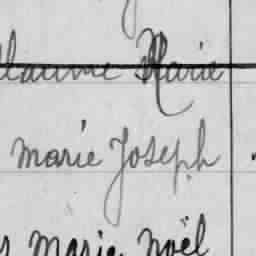 Marie
Marie Joseph
Marie Noël